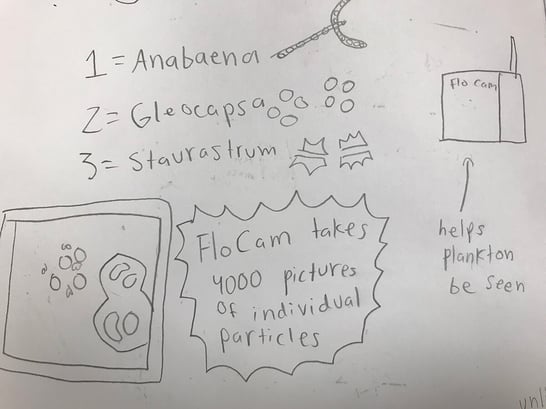 1 = Anabaena
2 = Gleocapsa
3 = Staurastrum
Flo Cam
FloCam takes
4000 pictures
of individual
particles
helps
plankton
be seen